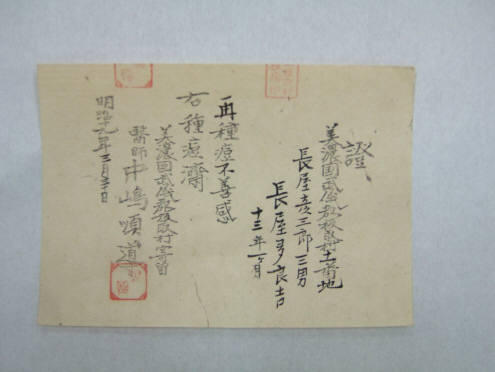 證
美濃国武儀郡板取村十番地
長屋彦三郎三男
長屋多良吉
十三年一ヶ月
再種痘不善感
右種痘済
美濃国武儀郡板取村寄留
醫師 中嶋頌道
明治十九年三月三日